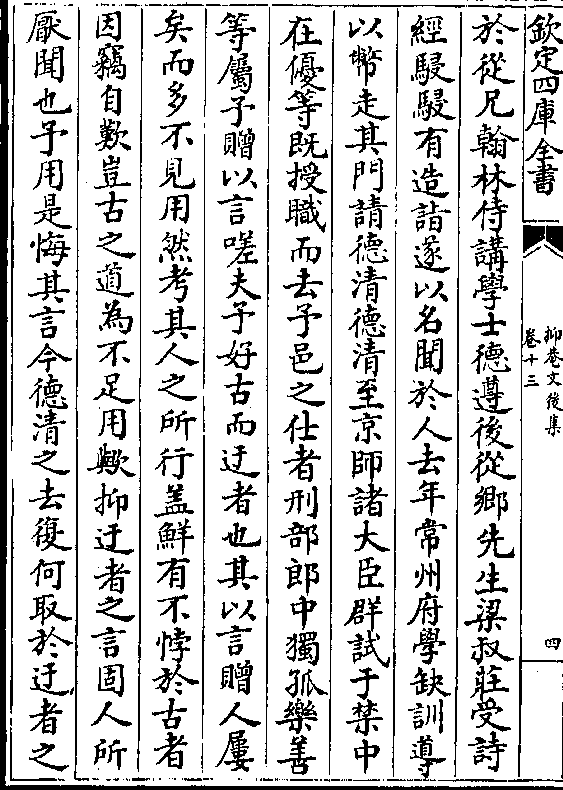 欽定四庫全書
抑菴文後集
卷十三
四
於從兄翰林侍講學士德遵後從鄉先生梁叔莊受詩
經駸駸有造詣遂以名聞於人去年常州府學缺訓導
以幣走其門請德清德清至京師諸大臣群試于禁中
在優等既授職而去予邑之仕者刑部郎中獨孤樂善
等屬予贈以言嗟夫予好古而迂者也其以言贈人屢
矣而多不見用然考其人之所行盖鮮有不悖於古者
因竊自歎豈古之道為不足用歟抑迂者之言固人所
厭聞也予用是悔其言今德清之去復何取於迂者之